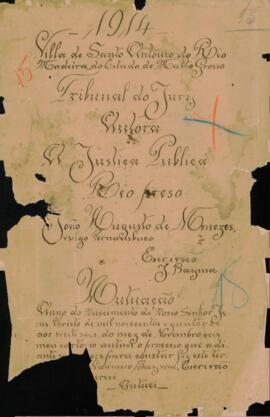 1914
15
Villa de Santo Antonio do Rio
Madeira do Estado de Matto Grosso
15
Tribunal do Jury
Autora
A Justiça Publica
Reo preso
João Augusto de Menezes,
vulgo Pernambuco
Escrivão
J. Bayma
Autuação
Anno do Nascimento de Nosso Senhor Je
Christo de mil novecentos e quatorze
aos do mez de Novembro em
meu cartorio autuei o processo que adi
ante para constar fiz este
Bayma, Escrivão